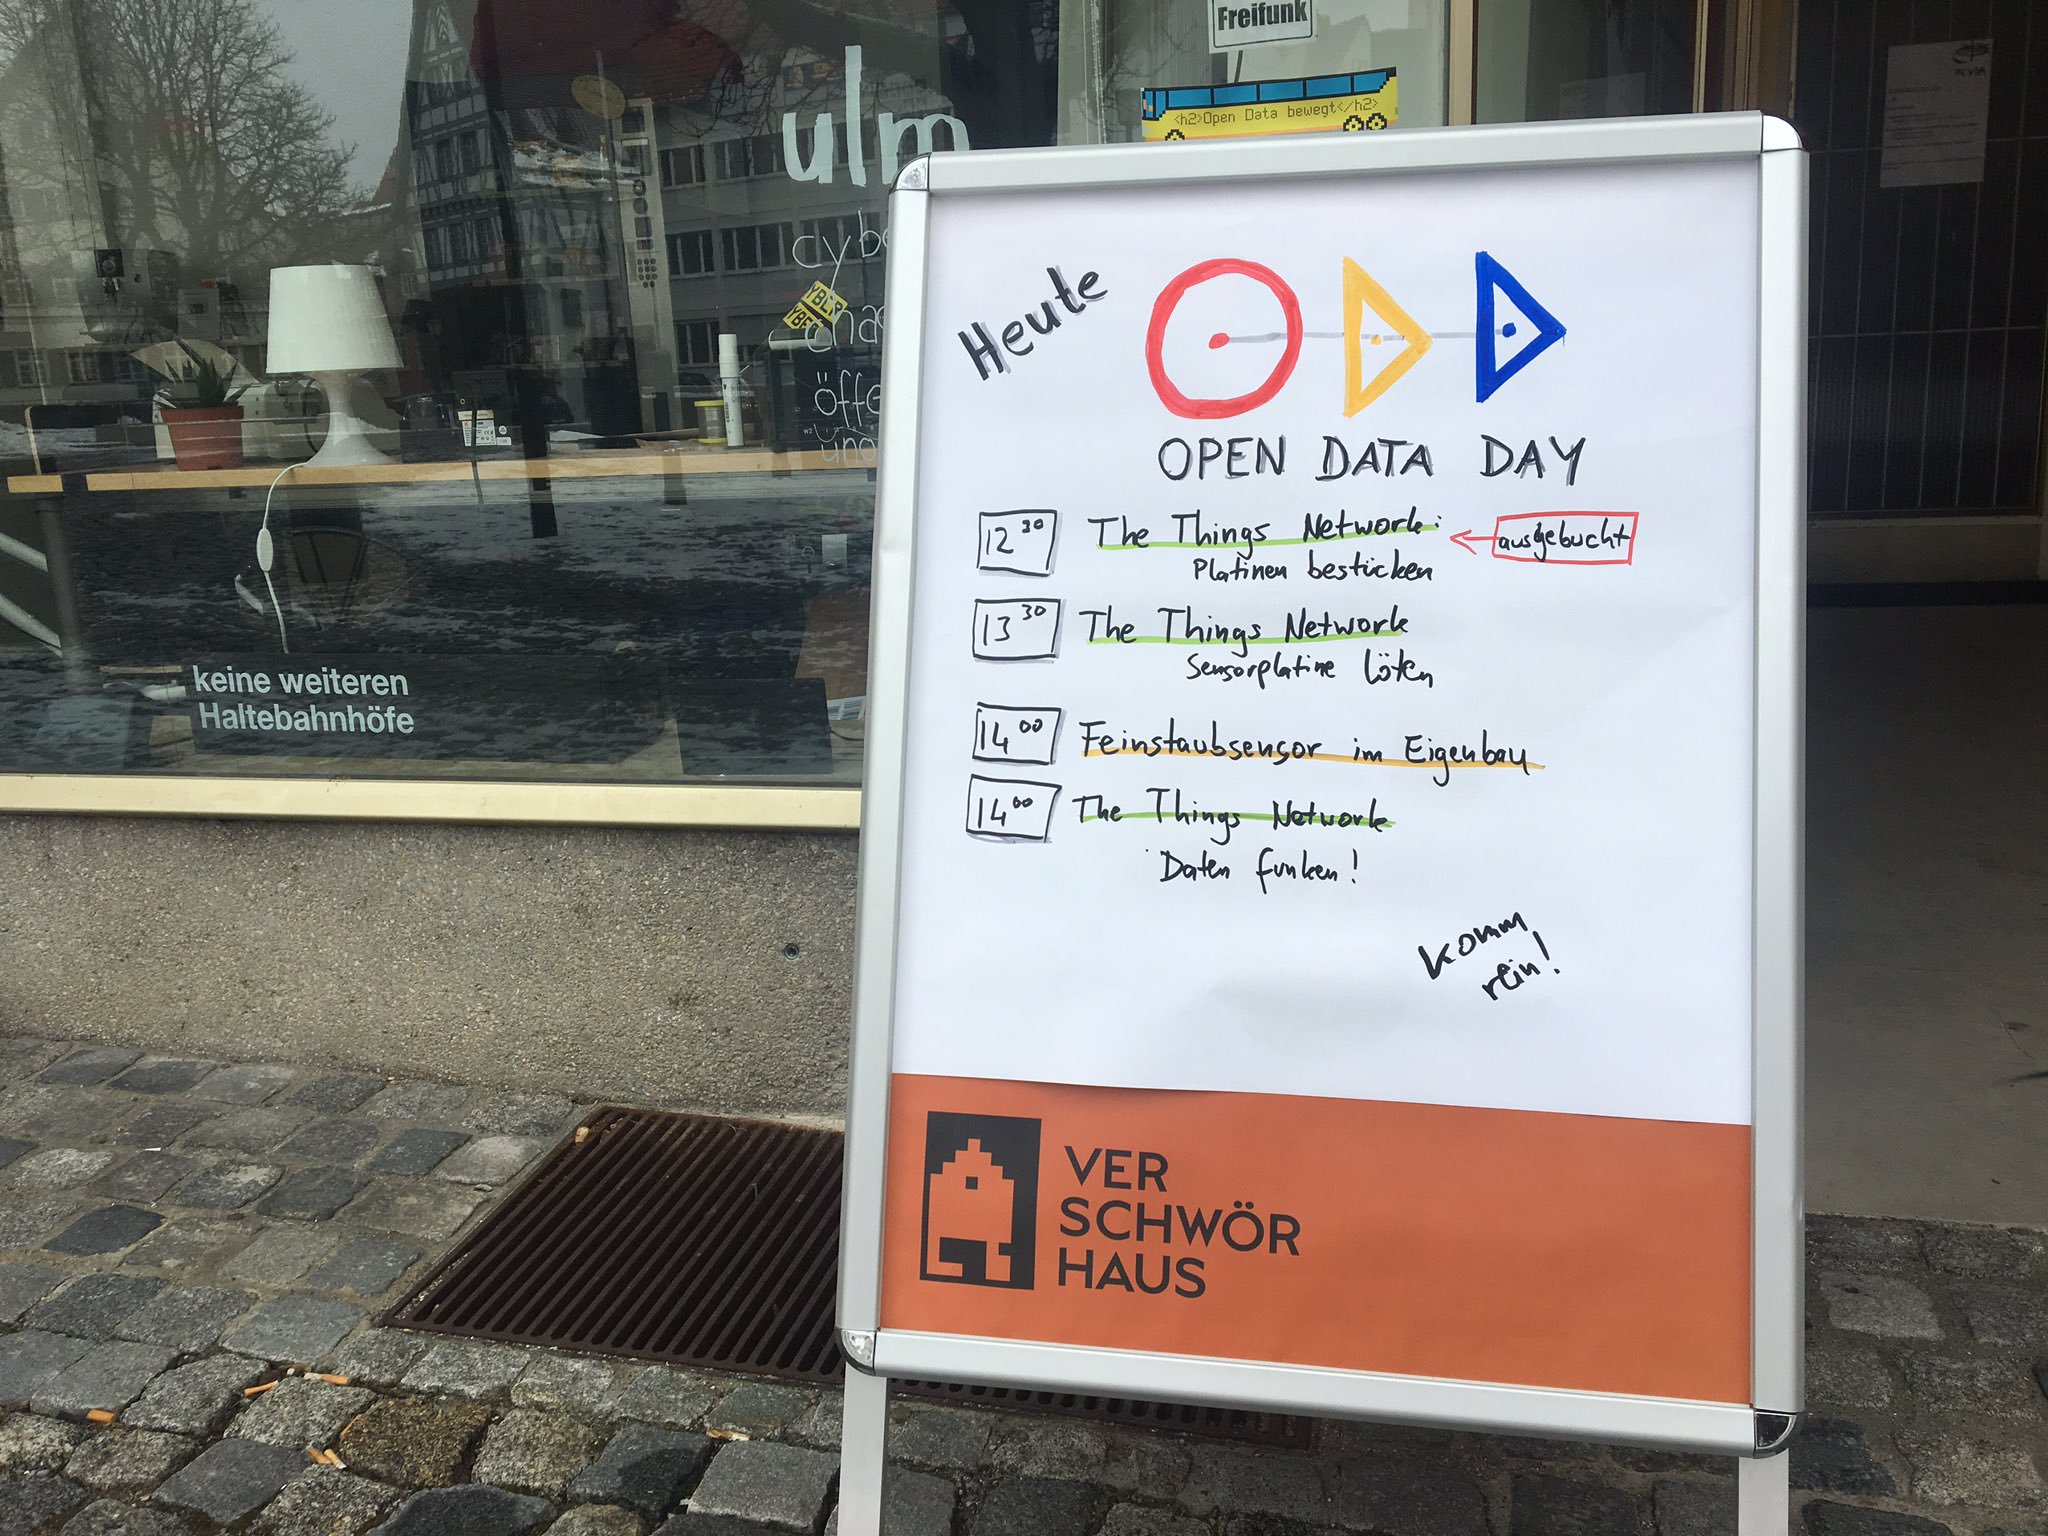 Freifunk
<h2>Open Data bewegt</h2>
ulm
keine weiteren
Haltebahnhöfe
Heute
OPEN DATA DAY
12 30 The Things Network: ausgebucht
Platinen bestücken
13 30 The Things Network
Sensorplatine löten
14 00 Feinstaubsensor im Eigenbau
14 00 The Things Network
Daten funken!
komm
rein!
VER
SCHWÖR
HAUS